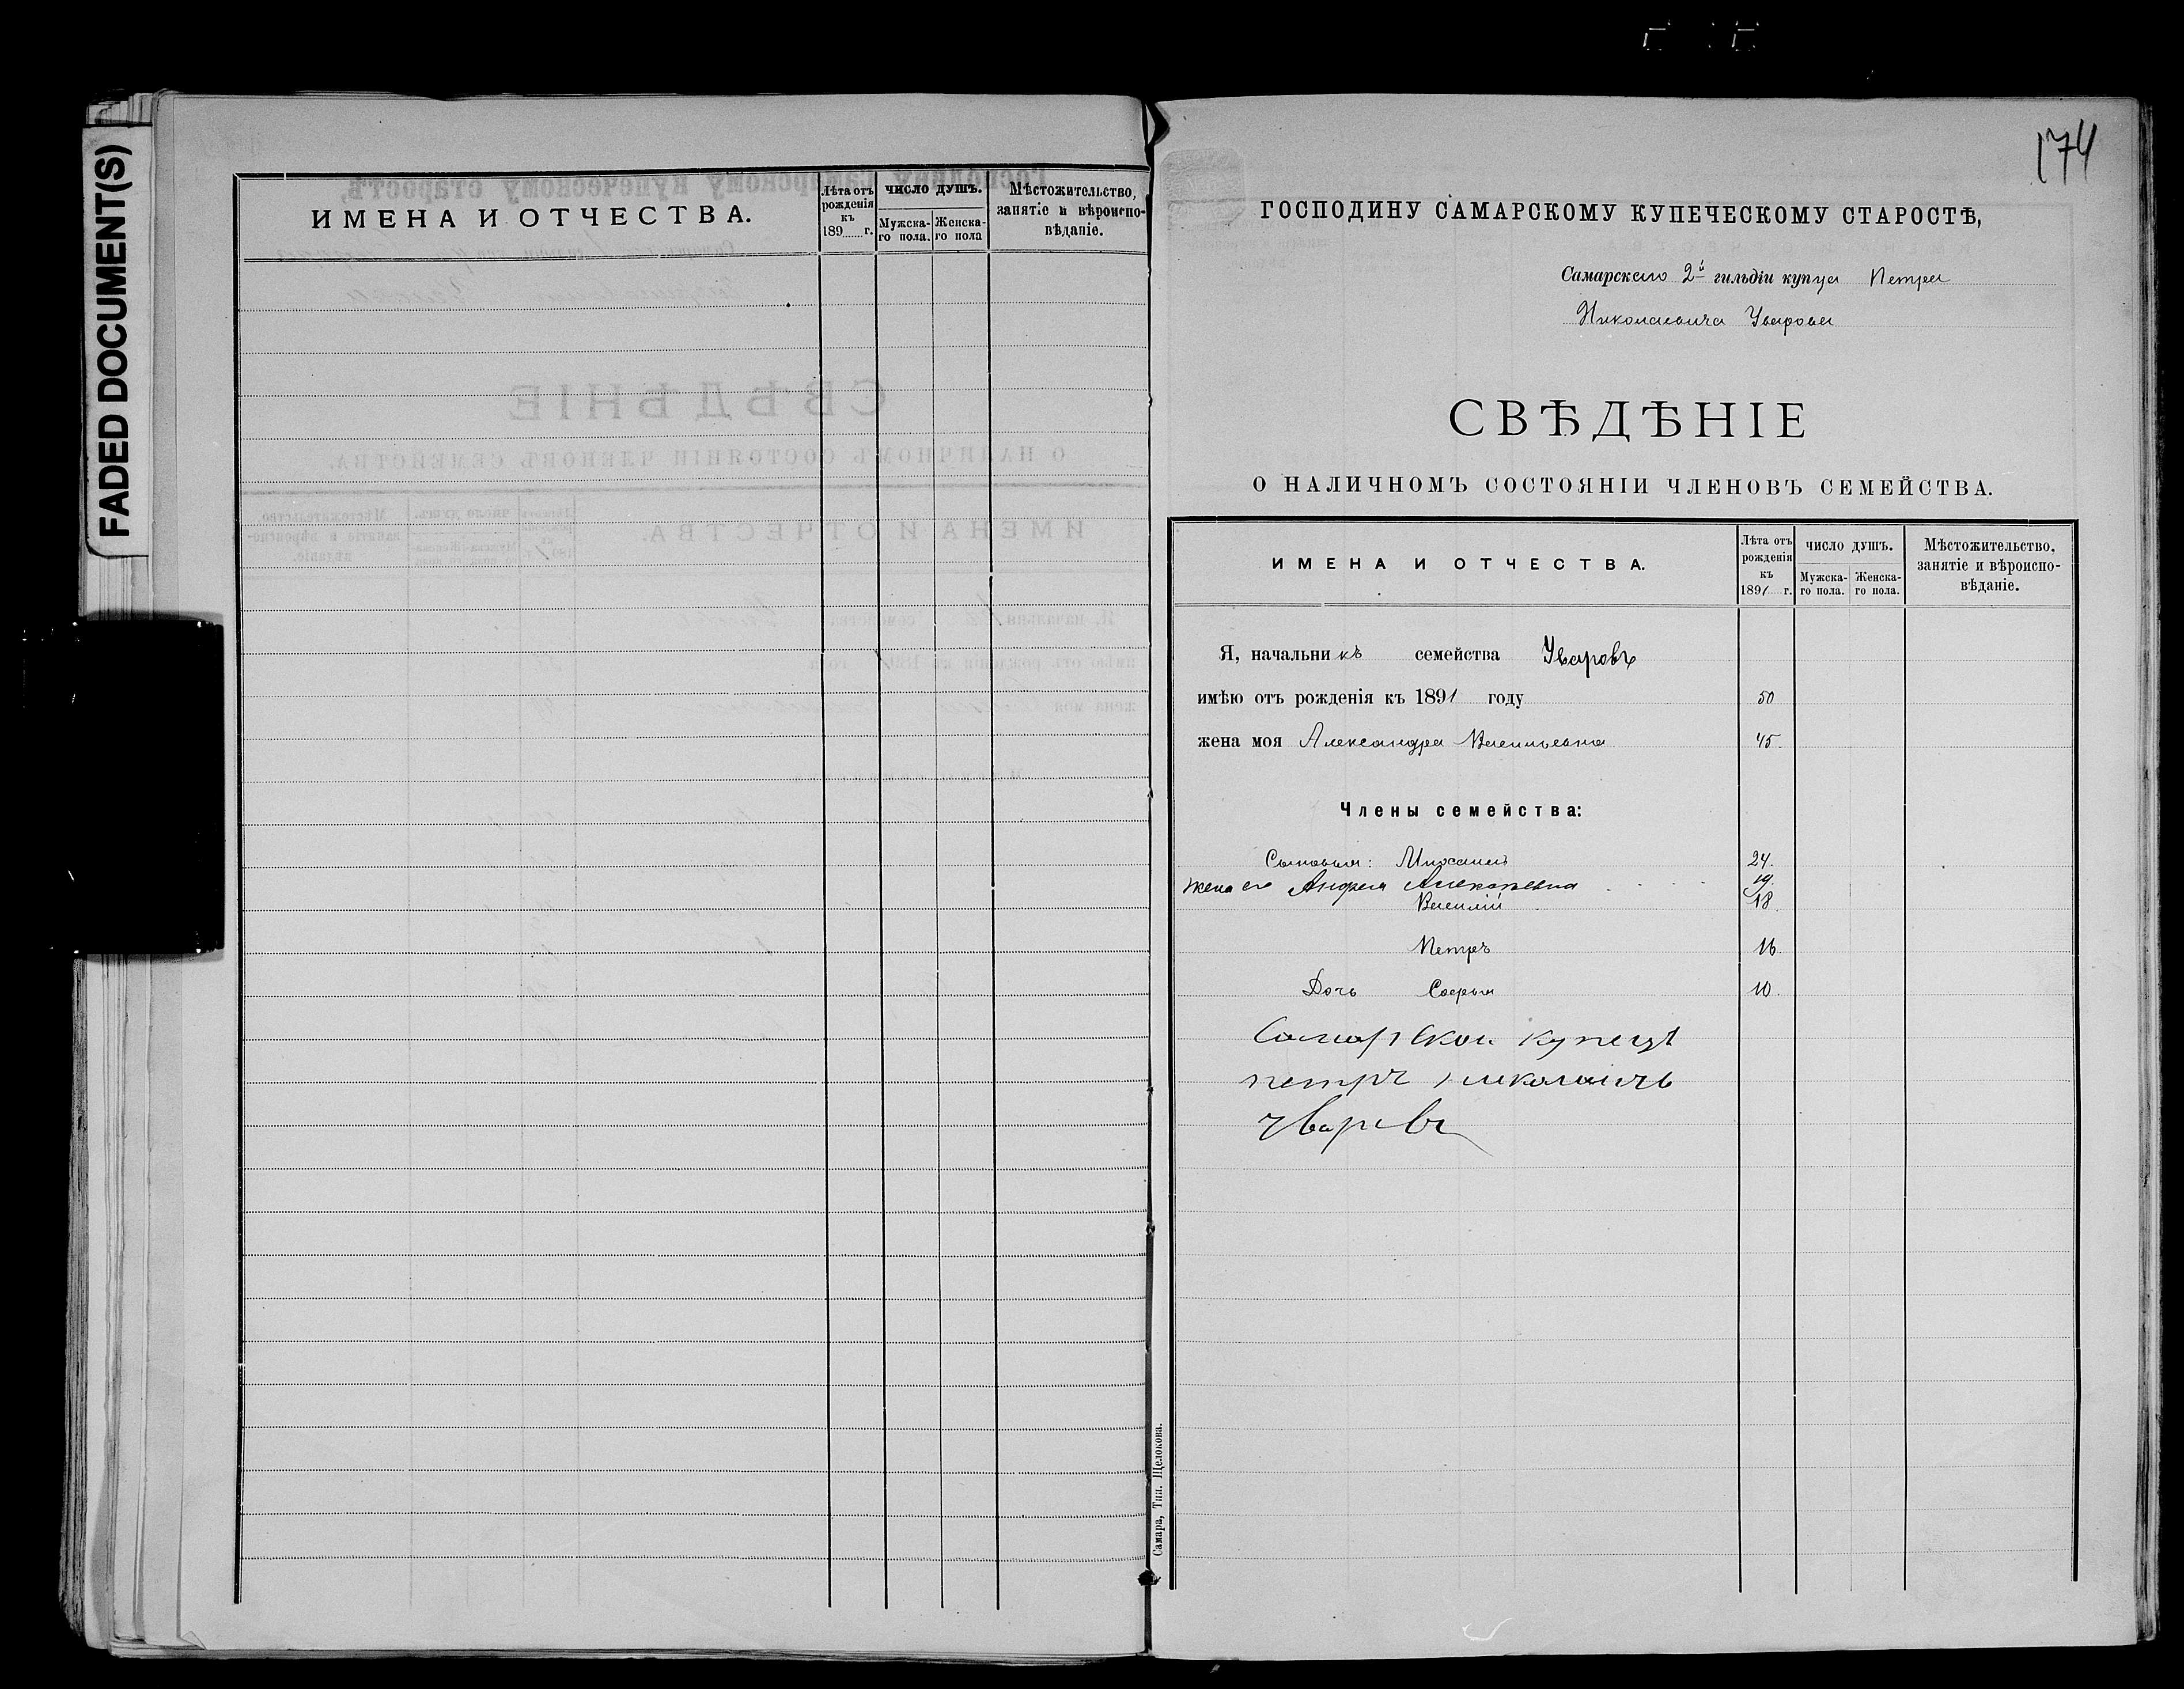 FADED DOCUMENT(S)
ИМЕНА И ОТЧЕСТВА.
Лѣта отъ рожденія къ 189 г.
ЧИСЛО ДУШЪ.
Мужска-го пола.
Женска-го пола
Мѣстожительство, занятіе и вѣроиспо-вѣданіе.
174
ГОСПОДИНУ САМАРСКОМУ КУПЕЧЕСКОМУ СТАРОСТѢ,
Самарскаго 2й гильдіи купца Петра
Николаевича Уварова
СВѢДѢНІЕ
О НАЛИЧНОМЪ СОСТОЯНІИ ЧЛЕНОВЪ СЕМЕЙСТВА.
ИМЕНА И ОТЧЕСТВА.
Лѣта отъ рожденія къ 1891 г.
ЧИСЛО ДУШЪ.
Мужска-го пола.
Женска-го пола.
Мѣстожительство. занятіе и вѣроиспо-вѣданіе.
Я, начальникъ семейства Уваровъ
имѣю отъ рожденія къ 1891 году 50
жена моя Александра Васильевна 45.
Члены семейства:
Сыновья: Михаилъ 24.
жена его Алексѣевна 19.
Василій 18.
Петръ 16.
Дочь Софья 10.
Самарскои купецъ
петръ николаичъ
Уваровъ
Самара, Тип. Щелокова.